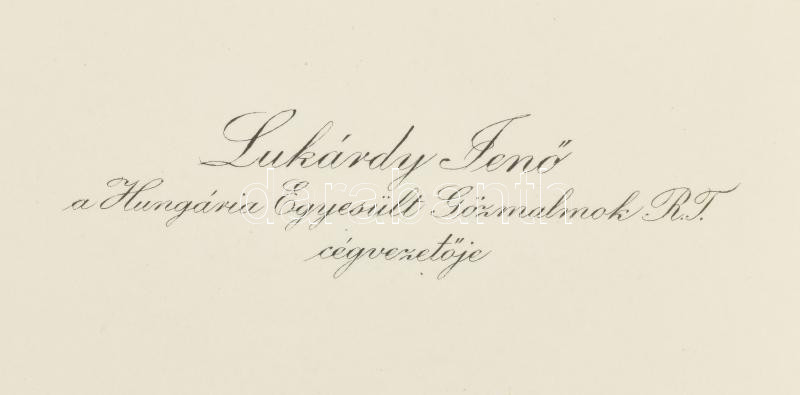 Lukárdy Jenő
a Hungária Egyesült Gőzmalmok R.T.
cégvezetője
darabanth